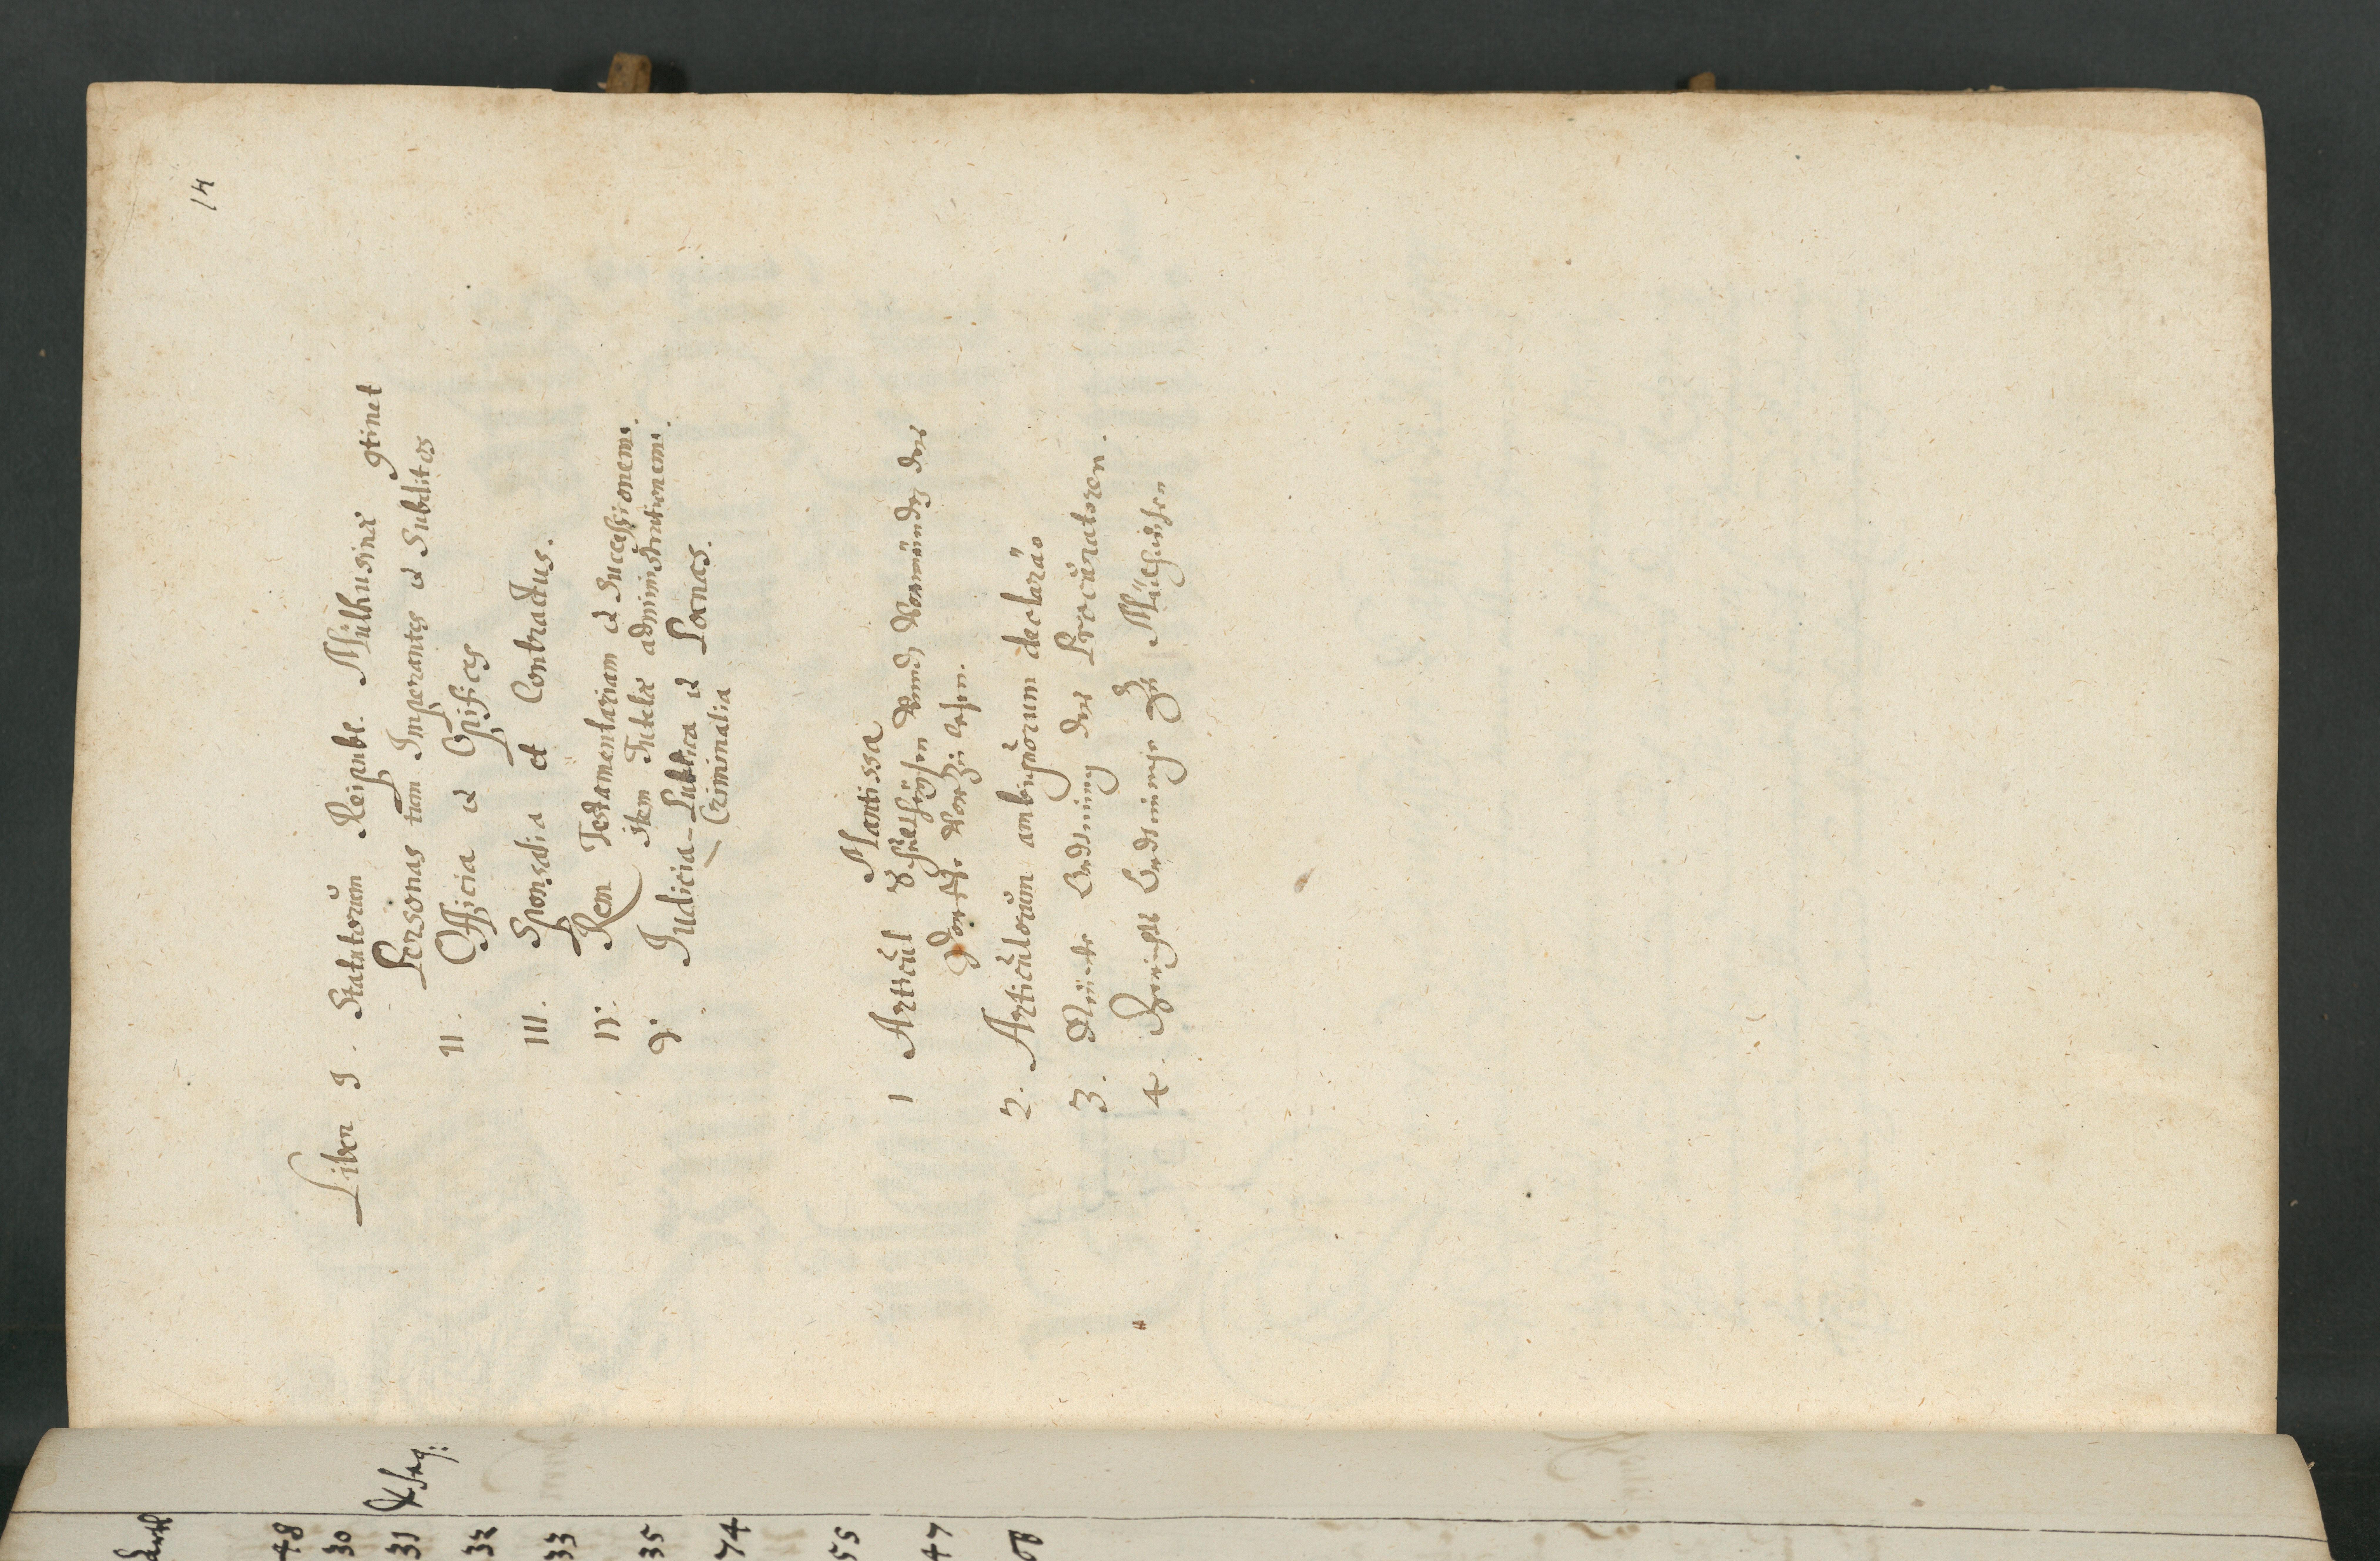 14
Liber I. Statutorum Reipubl. Mülhusinæ ꝯtinet
Personas tum Imperantes et Subditos
II. Officia et Opifices
III. Sponsalia et Contractus.
IV. Rem Testamentariam et Successionem.
item Tutelæ administrationem.
V. Judicia Publica et Pœnas.
Criminalia
Mantissa
1 Articul Vnnd Vormünder der
Vor Zu lesen.
2. Articulorum declarão
3. Ordnung der Procuratoren.
4. Ordnunge Zu Mülhausen
48
30
31 & seq:
32
33
35
74
55
47